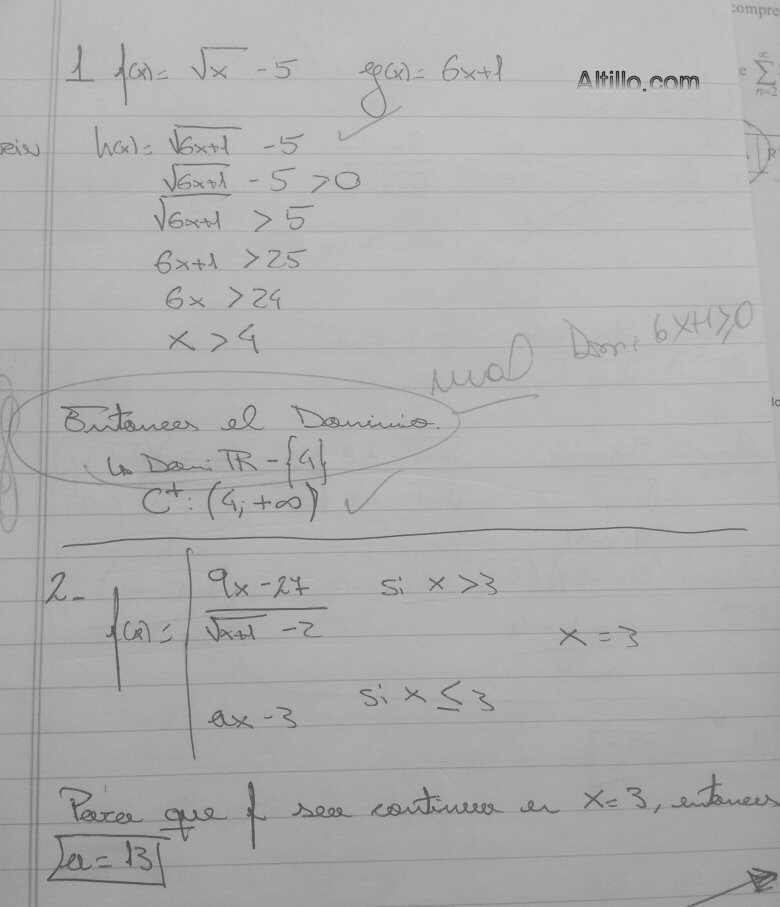 compre
1 f(x)= √x - 5 g(x)= 6x+1
Altillo.com
e ∞ Σ n=2
h(x)= √6x+1 - 5
√6x+1 - 5 > 0
√6x+1 > 5
6x+1 > 25
6x > 24
x > 4
mal Dom: 6x+1≥0
Entonces el Dominio.
↳ Dom: IR - {4}
C+: (4; +∞)
2- f(x)= 9x-27 / √x+1 - 2 si x > 3
x = 3
ax - 3 si x ≤ 3
Para que f sea continua en x=3, entonces
a = 13